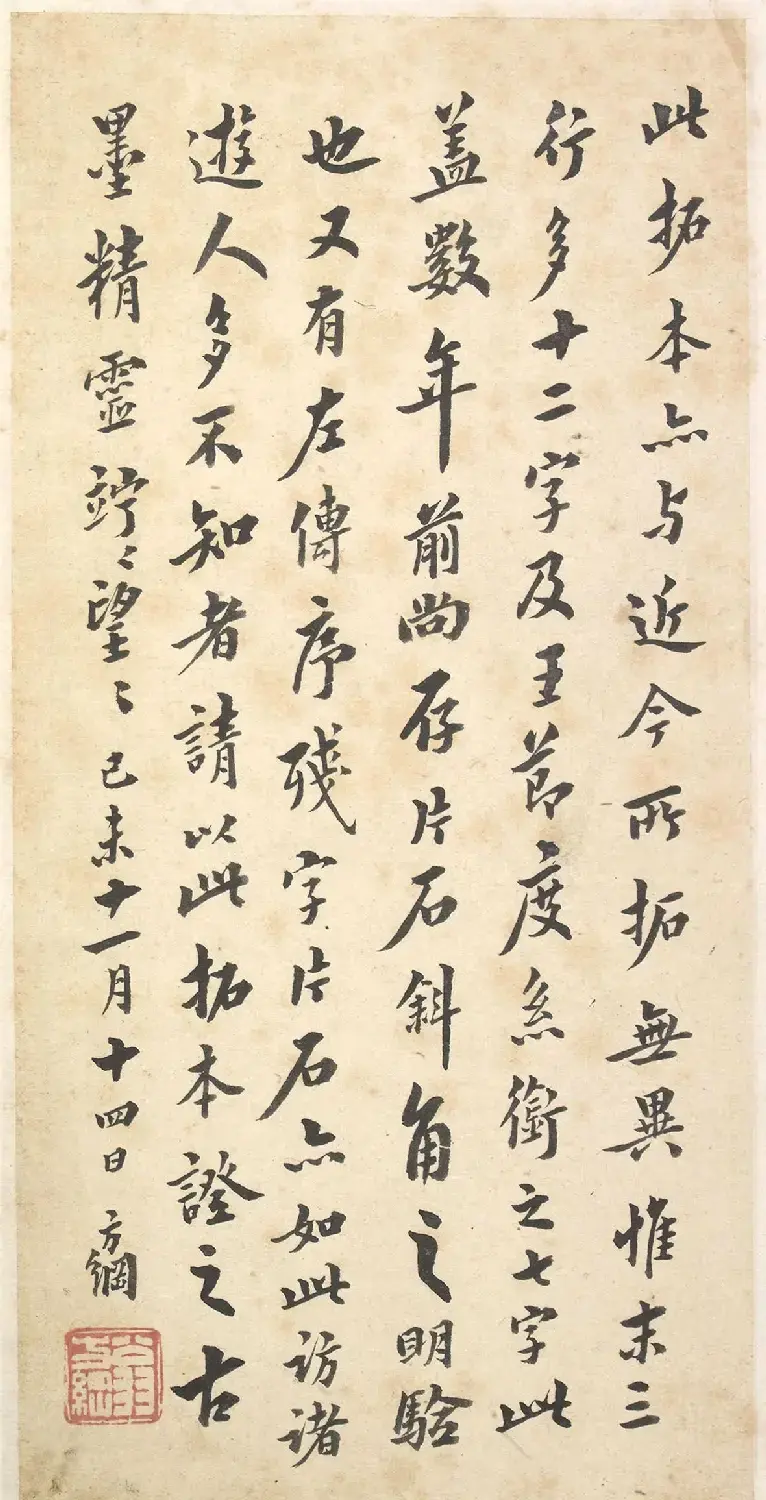 此拓本亦与近今所拓無異惟末三
行多十二字及王節度系銜之七字此
盖數年前尚存片石斜角之明驗
也又有左傳序殘字片石亦如此訪諸
遊人多不知者請以此拓本證之古
墨精靈竚〻望〻己未十一月十四日方綱
翁方綱